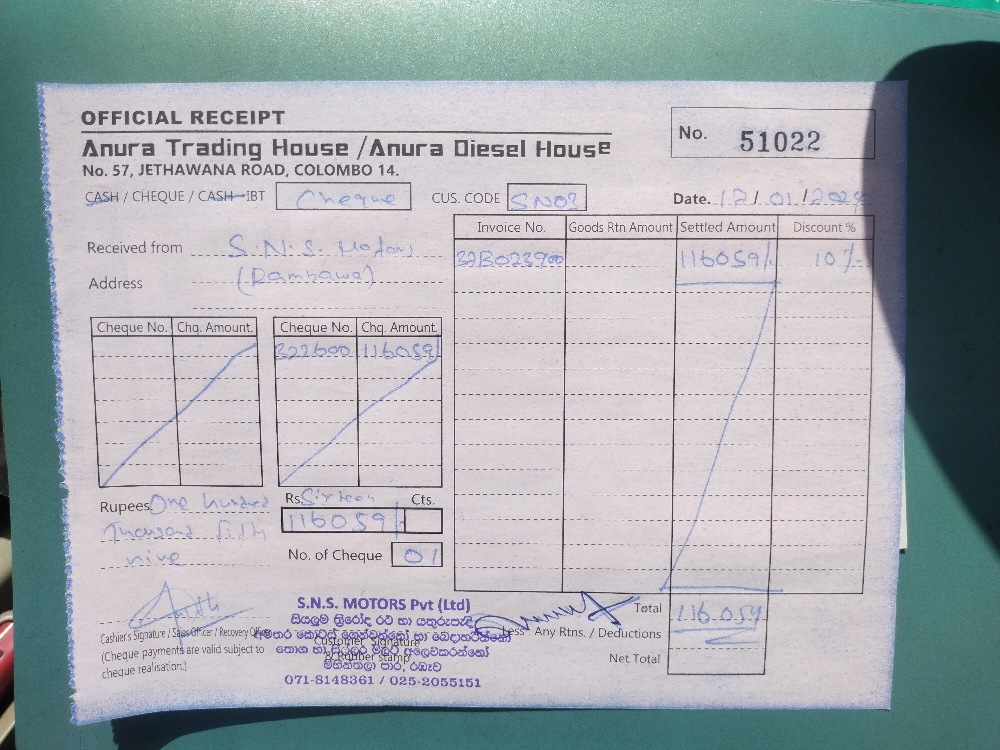 OFFICIAL RECEIPT
Anura Trading House / Anura Diesel House
No. 57, JETHAWANA ROAD, COLOMBO 14.
No. 51022
CASH / CHEQUE / CASH-IBT Cheque
CUS. CODE SN02
Date. 12/01/202
Received from S.N.S. Motors
Address
Invoice No. Goods Rtn Amount Settled Amount Discount %
32B023900 116059/- 10%
Cheque No. Chq. Amount.
Cheque No. Chq. Amount.
322600 116059/
Rupees One hundred Sixteen
Thousand fifty
nine
Rs. Cts.
116059/-
No. of Cheque 01
Cashier's Signature / Sales Officer / Recovery Officer
(Cheque payments are valid subject to
cheque realisation.)
Customer Signature
& Rubber stamp
S.N.S. MOTORS Pvt (Ltd)
සියලුම ත්‍රිරෝද රථ හා යතුරුපැදි
අමතර කොටස් ගෙන්වන්නෝ හා බෙදාහරින්නෝ
තොග හා සිල්ලර මිලට අලෙවිකරන්නෝ
මිහින්තලා පාර, රඹෑව
071-8148361 / 025-2055151
Total 116.059
Less - Any Rtns. / Deductions
Net Total